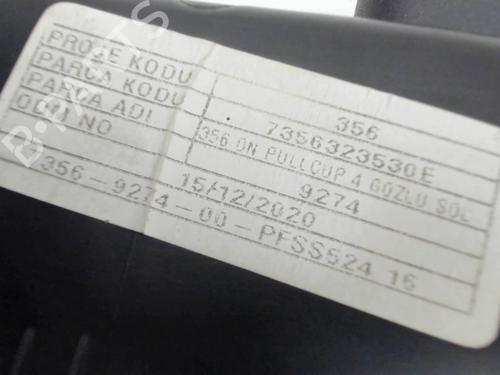 PROJE KODU 356
PARCA KODU 7356323530E
PARCA ADI 356 ON PULLCUP 4 GOZLU SOL
ODM NO 9274
15/12/2020
356-9274-00-PFSS524 16
B-PARTS